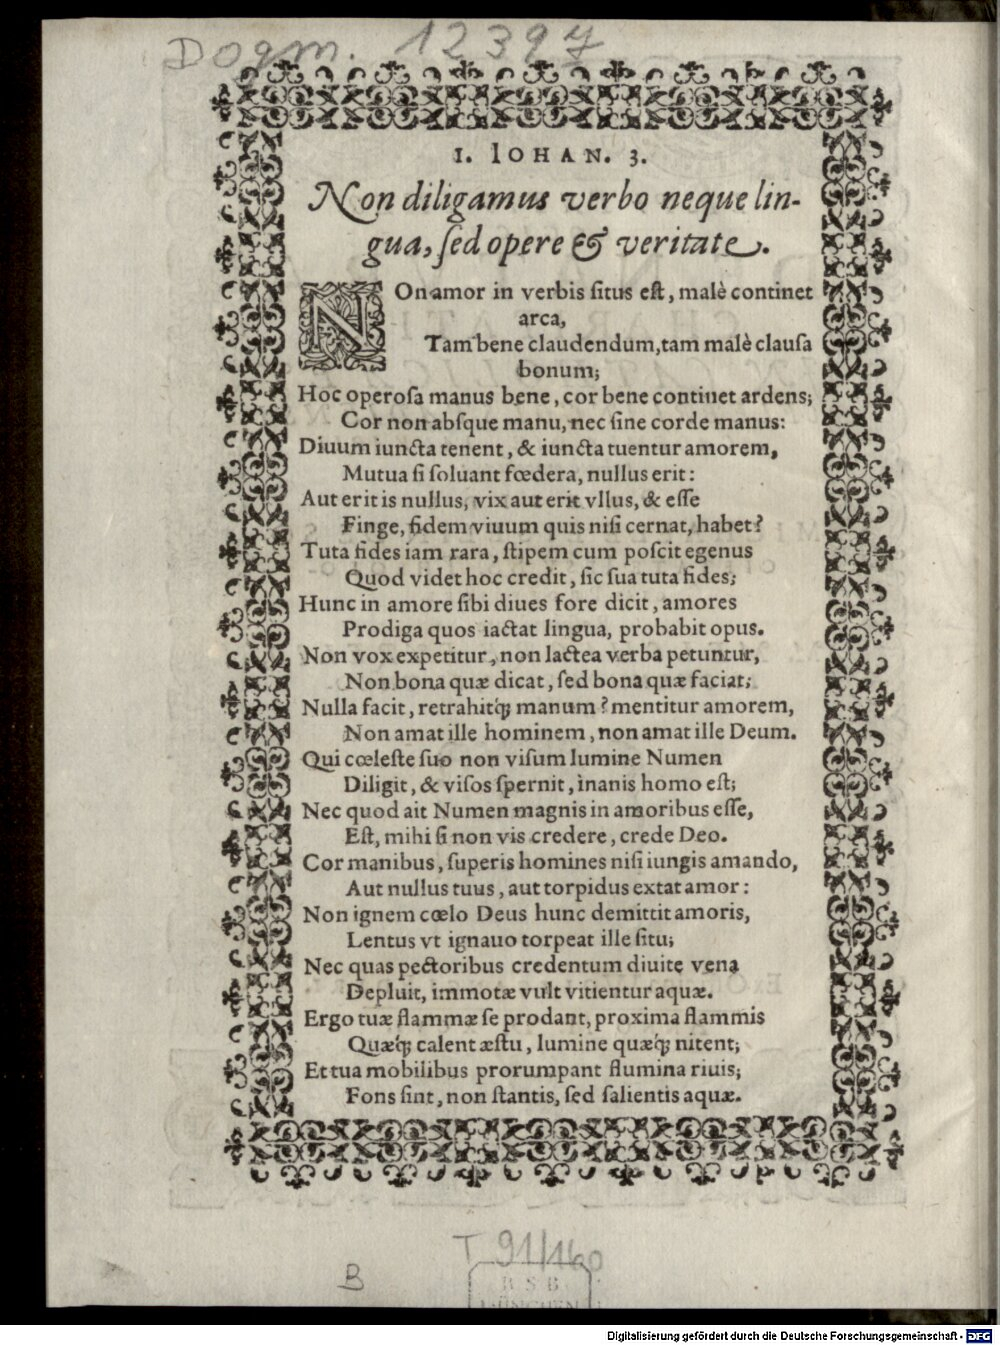 Dogm. 12397
1. IOHAN. 3.
Non diligamus verbo neque lin-
gua, ſed opere & veritate.
NOn amor in verbis ſitus eſt, malè continet
arca,
Tam bene claudendum, tam malè clauſa
bonum;
Hoc operoſa manus bene, cor bene continet ardens;
Cor non abſque manu, nec ſine corde manus:
Diuum iuncta tenent, & iuncta tuentur amorem,
Mutua ſi ſoluant fœdera, nullus erit:
Aut erit is nullus, vix aut erit vllus, & eſſe
Finge, fidem viuum quis niſi cernat, habet?
Tuta fides iam rara, ſtipem cum poſcit egenus
Quod videt hoc credit, ſic ſua tuta fides;
Hunc in amore ſibi diues fore dicit, amores
Prodiga quos iactat lingua, probabit opus.
Non vox expetitur, non lactea verba petuntur,
Non bona quæ dicat, ſed bona quæ faciat;
Nulla facit, retrahitq́; manum? mentitur amorem,
Non amat ille hominem, non amat ille Deum.
Qui cœleſte ſuo non viſum lumine Numen
Diligit, & viſos ſpernit, inanis homo eſt;
Nec quod ait Numen magnis in amoribus eſſe,
Eſt, mihi ſi non vis credere, crede Deo.
Cor manibus, ſuperis homines niſi iungis amando,
Aut nullus tuus, aut torpidus extat amor:
Non ignem cœlo Deus hunc demittit amoris,
Lentus vt ignauo torpeat ille ſitu;
Nec quas pectoribus credentum diuite vena
Depluit, immotæ vult vitientur aquæ.
Ergo tuæ flammæ ſe prodant, proxima flammis
Quæq́; calent æſtu, lumine quæq́; nitent;
Et tua mobilibus prorumpant flumina riuis;
Fons ſint, non ſtantis, ſed ſalientis aquæ.
T 91/160
B
B S B
MÜNCHEN
Digitalisierung gefördert durch die Deutsche Forschungsgemeinschaft - DFG